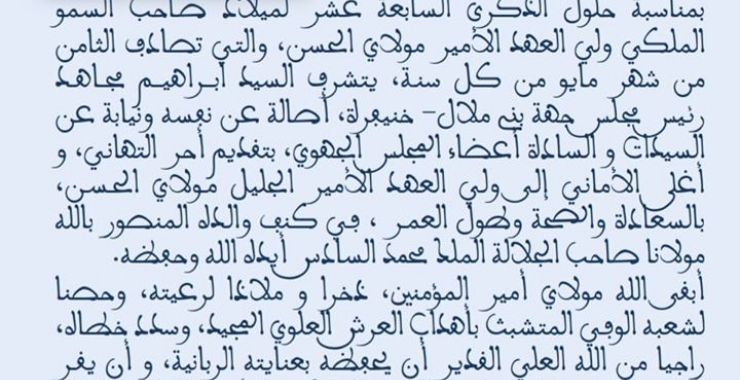 بمناسبة حلول الذكرى السابعة عشر لميلاد صاحب السمو
الملكي ولي العهد الأمير مولاي الحسن، والتي تصادف الثامن
من شهر مايو من كل سنة، يتشرف السيد ابراهيم مجاهد
رئيس مجلس جهة بني ملال- خنيفرة، أصالة عن نفسه ونيابة عن
السيدات و السادة أعضاء المجلس الجهوي، بتقديم أحر التهاني، و
أغلى الأماني إلى ولي العهد الأمير الجليل مولاي الحسن،
بالسعادة والصحة وطول العمر ، في كنف والده المنصور بالله
مولانا صاحب الجلالة الملك محمد السادس أيده الله وحفظه.
أبقى الله مولاي أمير المؤمنين، ذخرا و ملاذا لرعيته، وحصنا
لشعبه الوفي المتشبث بأهداب العرش العلوي المجيد، وسدد خطاه،
راجيا من الله العلي القدير أن يحفظه بعنايته الربانية، و أن يقر